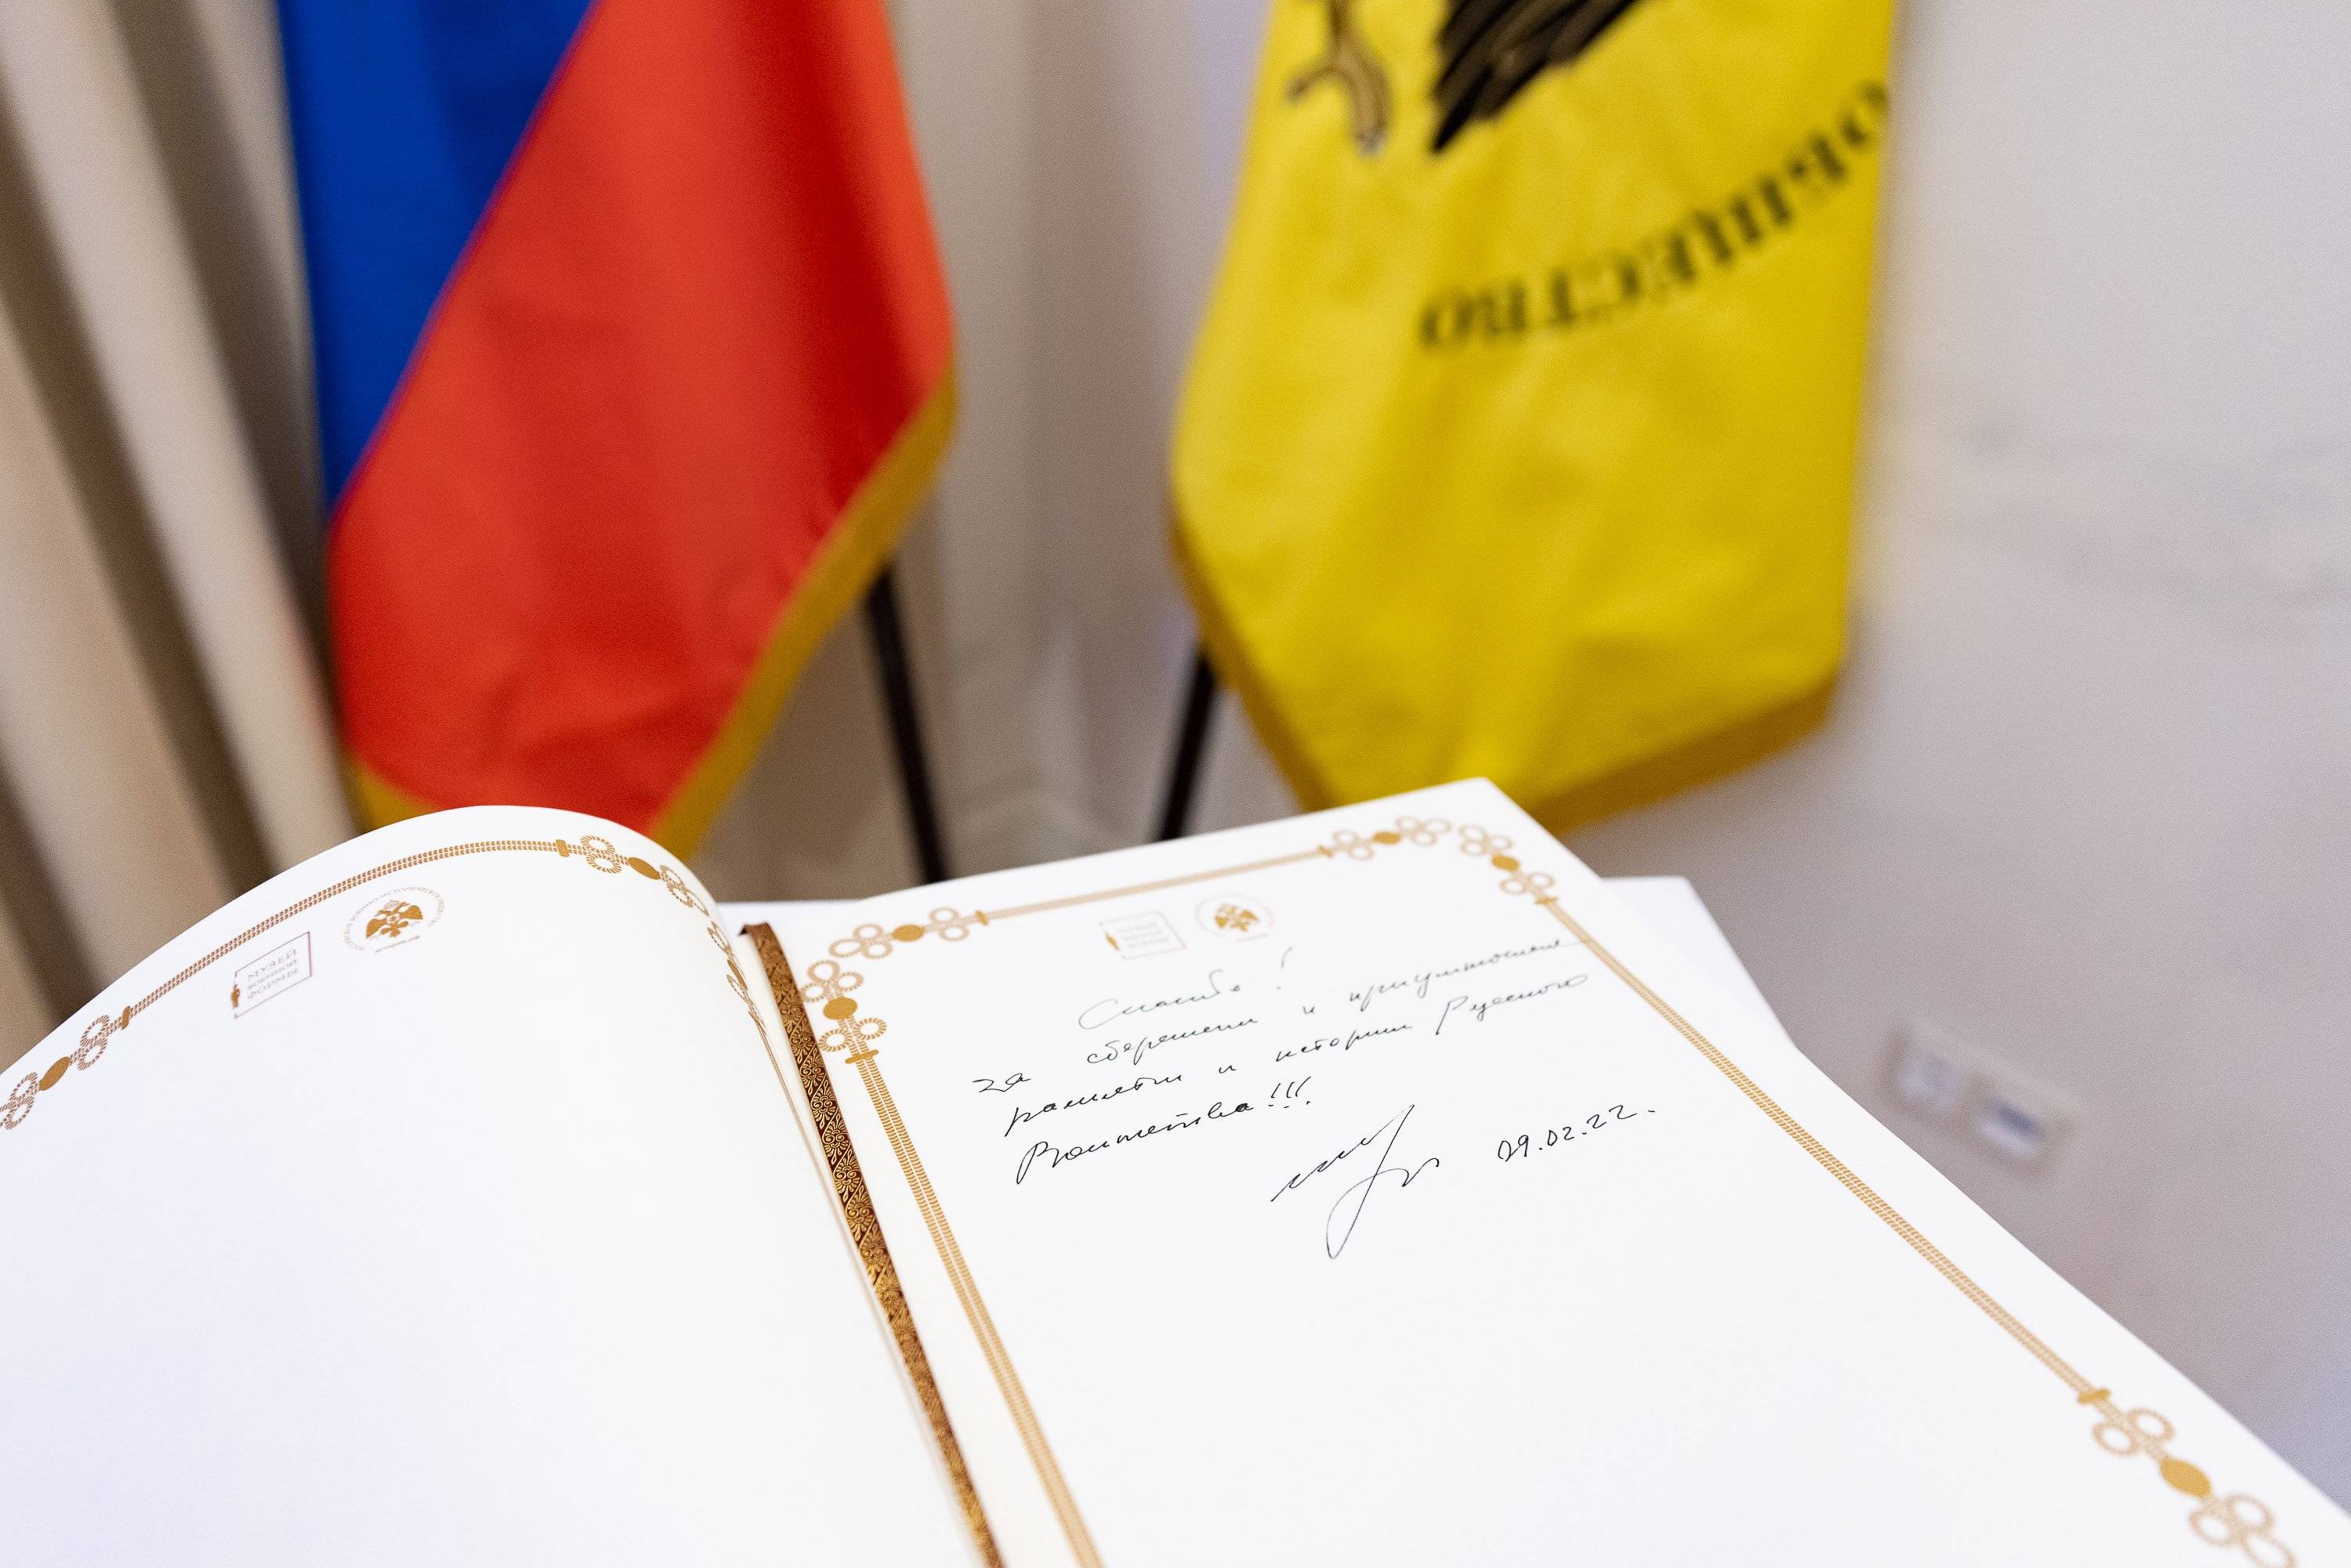 ОБЩЕСТВО
МУЗЕЙ
ВОЕННОЙ
ФОРМЫ
МУЗЕЙ
ВОЕННОЙ
ФОРМЫ
Спасибо!
за сбережение и приумножение
памяти и истории Русского
Воинства!!!
09.02.22.